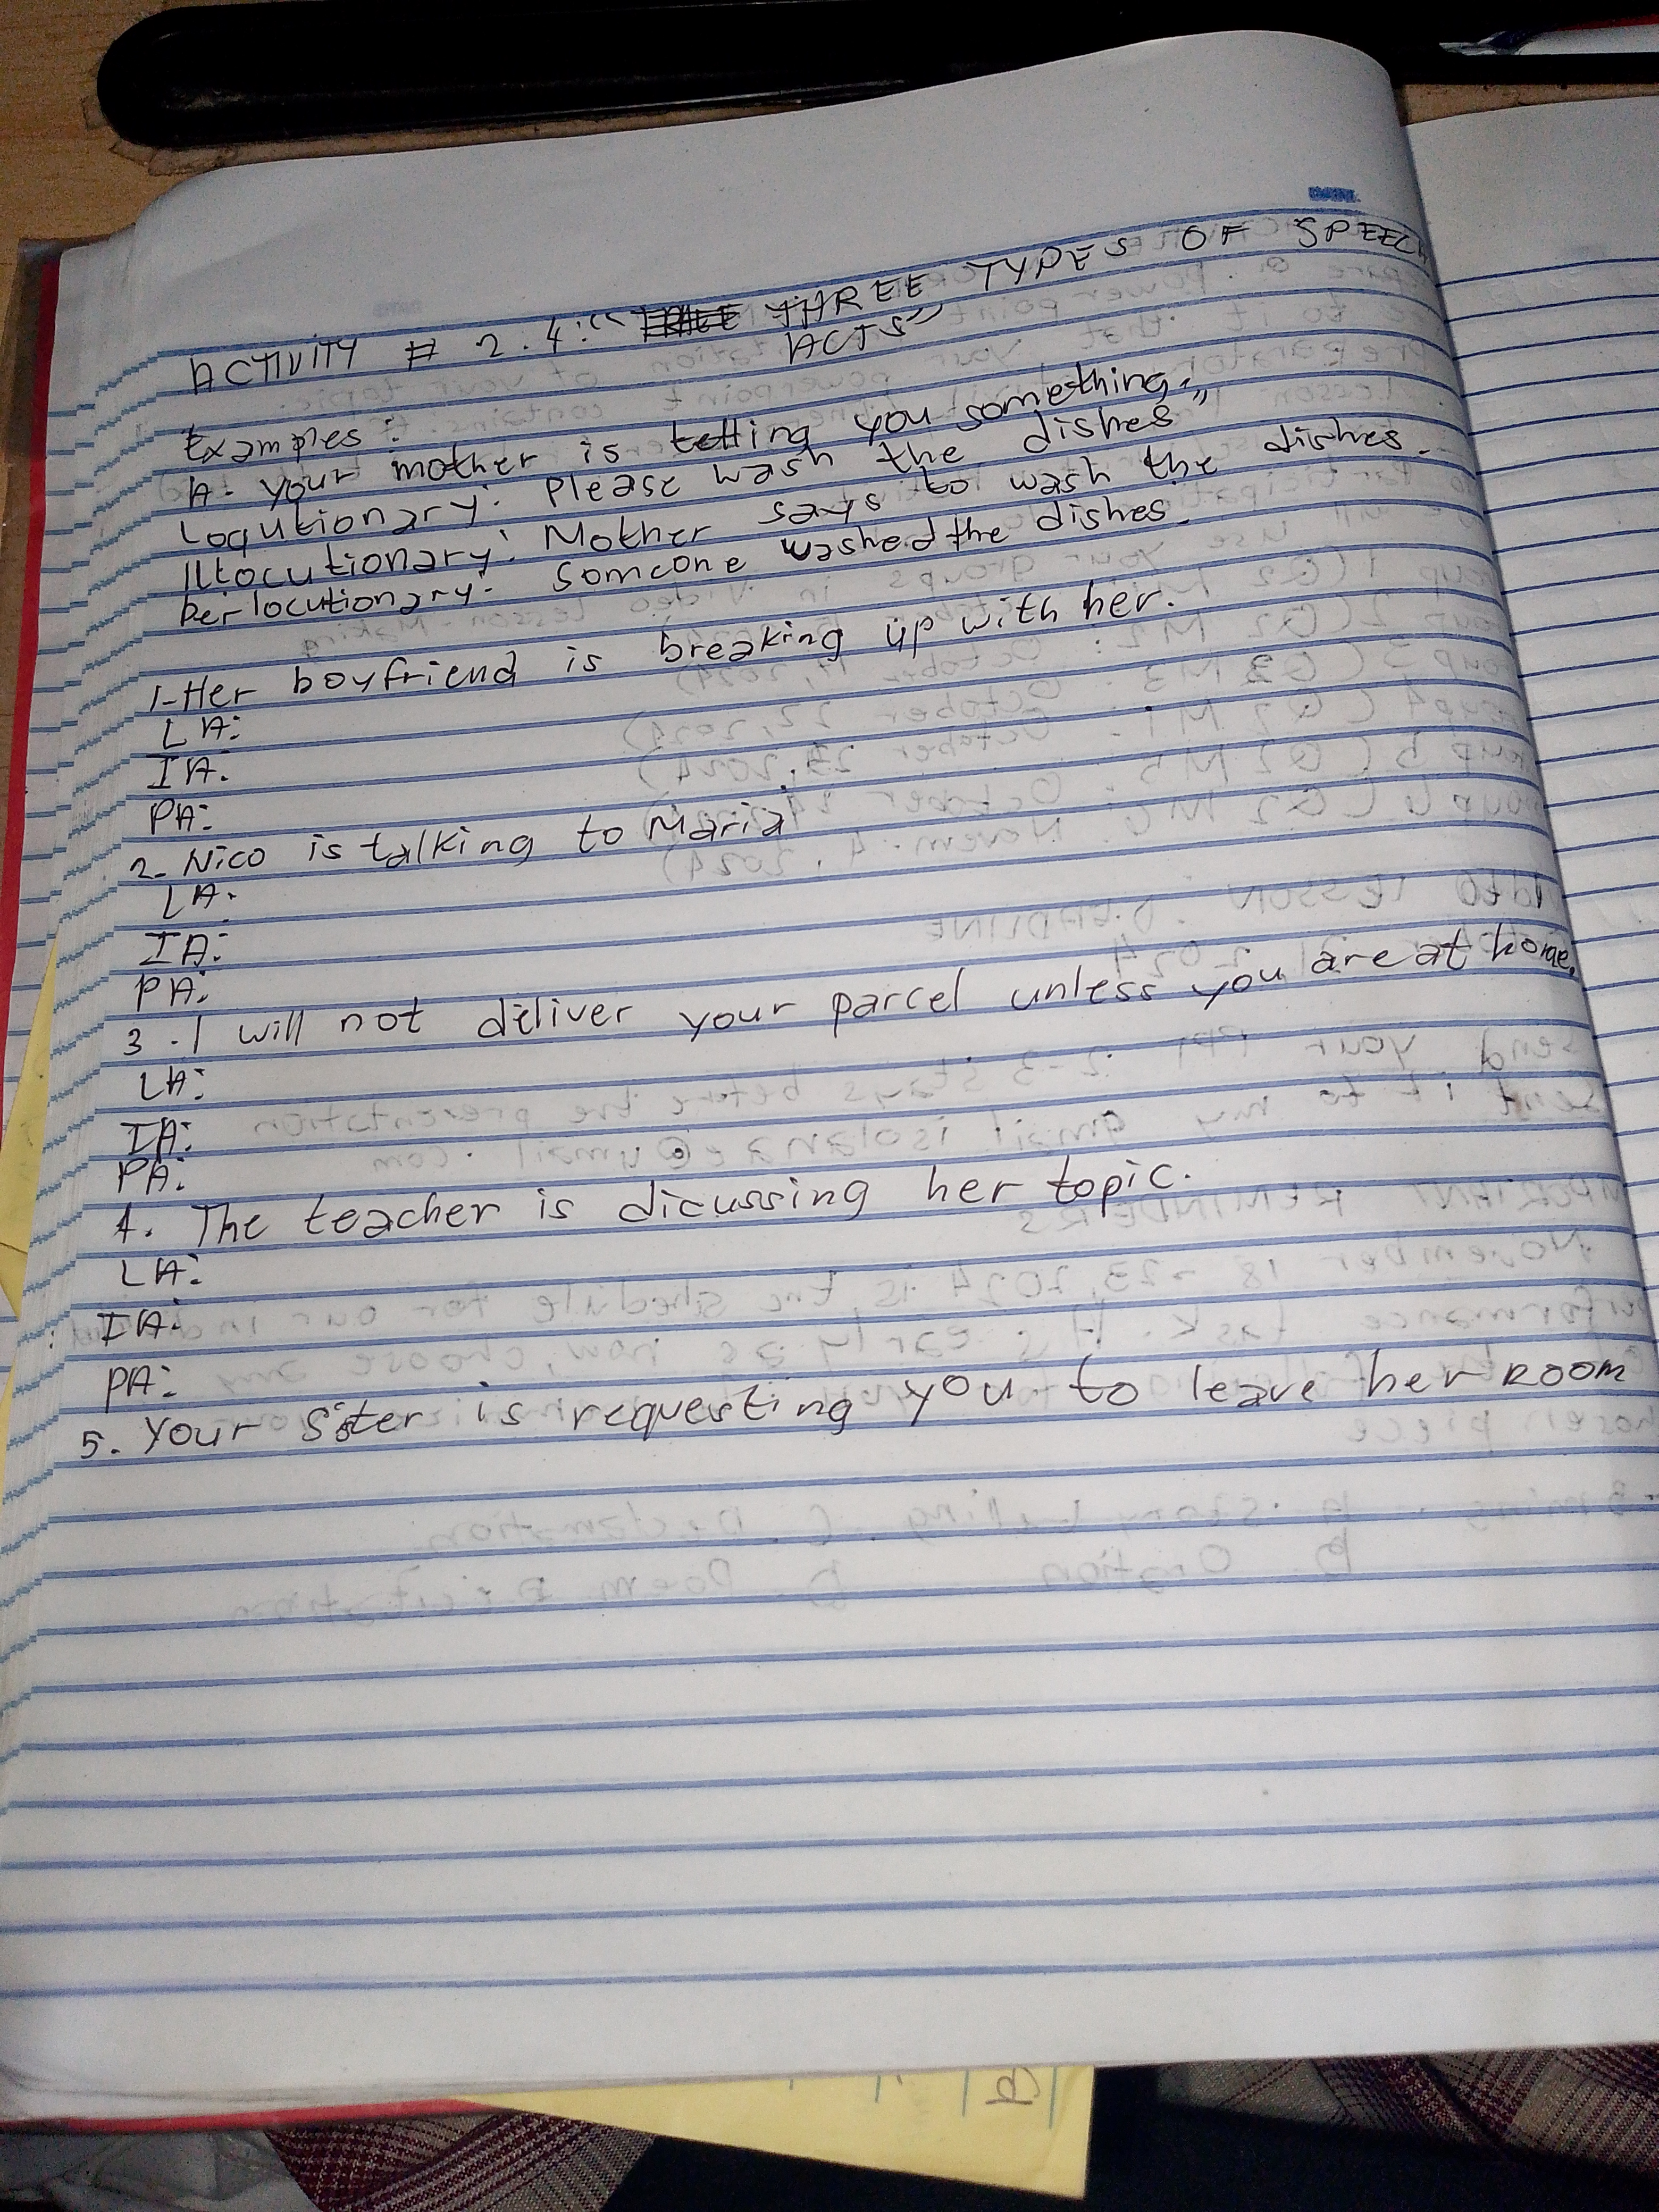 ACTIVITY # 2.4: " THREE TYPES OF SPEECH
ACTS"
Examples:
A. Your mother is telling you something.
Loqutionary: Please wash the dishes"
Illocutionary: Mother says to wash the dishes.
Perlocutionary: Someone washed the dishes.
1-Her boyfriend is breaking up with her.
LA:
IA:
PA:
2- Nico is talking to Maria
LA:
IA:
PA:
3. I will not deliver your parcel unless you are at home.
LA:
IA:
PA:
4. The teacher is dicussing her topic.
LA:
IA:
PA:
5. Your Sister is requesting you to leave her ROOM